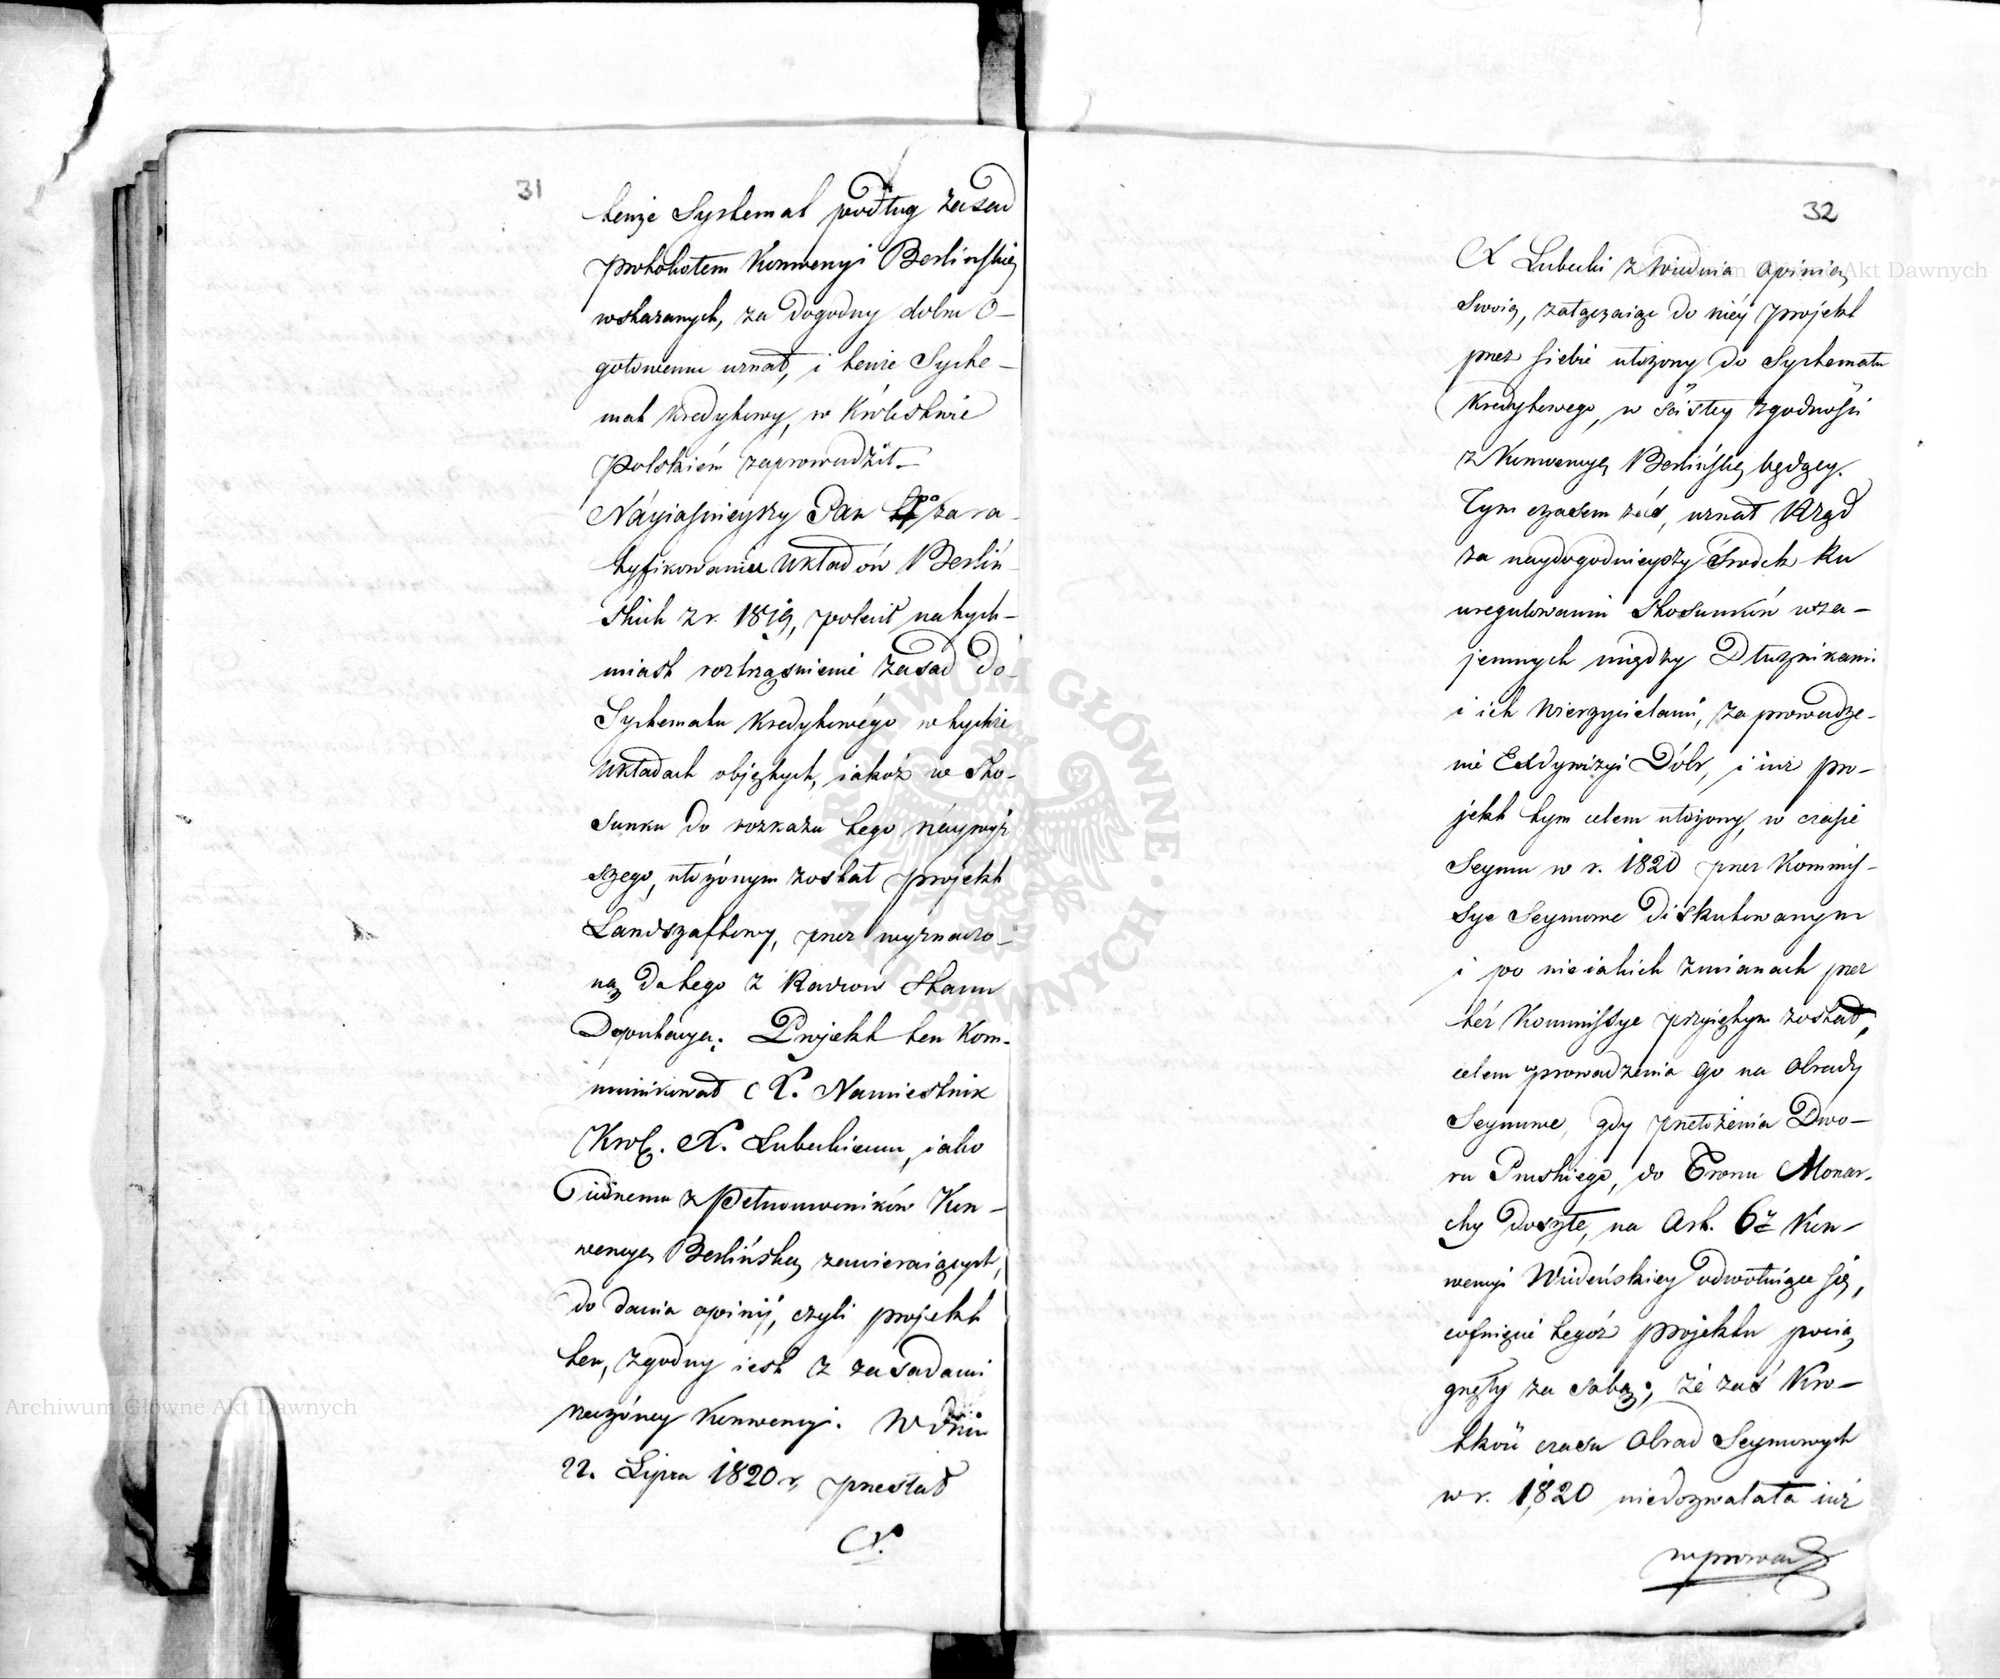 31
tenże Systemat podług zasad
protokołem Konwencyi Berlińskiey
wskazanych, za dogodny dobru O-
gółowemu uznał, i tenże Syste-
mat Kredytowy, w Królestwie
Polskiém zaprowadził.
Nayiaśnieyszy Pan po zara-
tyfikowaniu Układów Berliń-
skich z r. 1819, polecił natych-
miast roztrząśnienie zasad do
Systematu Kredytowégo w tychże
Układach objętych, iakoż w sto-
sunku do rozkazu tego náywyż-
szego, ułożónym został projekt
Landszaftowy, przez wyznaczo-
ną do tego z Radców Stanu
Deputacyą. Projekt ten Kom-
munikował X. Namiestnik
Król. X. Lubeckiemu, iako
iednemu z Pełnomocników Kon-
wencyą Berlińską zawieraiących,
do dania opinij, czyli projekt
ten, zgodny iest z zasadami
rzeczóney Konwencyi. W dniu
22. Lipca 1820 r. przesłał
X.
32
X Lubecki z Wiednia opinią
swoią, załączaiąc do niéy projekt
przez siebie ułożony do Systematu
Kredytowego, w ścisłey zgodności
z Konwencyą Berlińską będący.
Tym czasem zaś, uznał Rząd
za naydogodnieyszy środek ku
uregulowaniu stosunków wza-
jemnych między Dłużnikami
i ich Wierzycielami, zaprowadze-
nie Exdywizyi Dóbr, i iuż pro-
jekt tym celem ułożony, w czasie
Seymu w r. 1820 przez Kommis-
sye Seymowe diskutowanym
i po nieiakich zmianach przez
też Kommissye przyiętym został,
celem wprowadzenia go na obrady
Seymowe, gdy przełożenia Dwo-
ru Pruskiego, do Tronu Monar-
chy doszłe, na Art. 6ź Kon-
wencyi Wiedeńskiey odwołuiące się,
cofnięcie tegóż projektu pocią
gnęły za sobą; że zaś Kró-
tkość czasu Obrad Seymowych
w r. 1820 niedozwalała iuż
wprowadz
Archiwum Główne Akt Dawnych
Archiwum Główne Akt Dawnych
ARCHIWUM GŁÓWNE AKT DAWNYCH